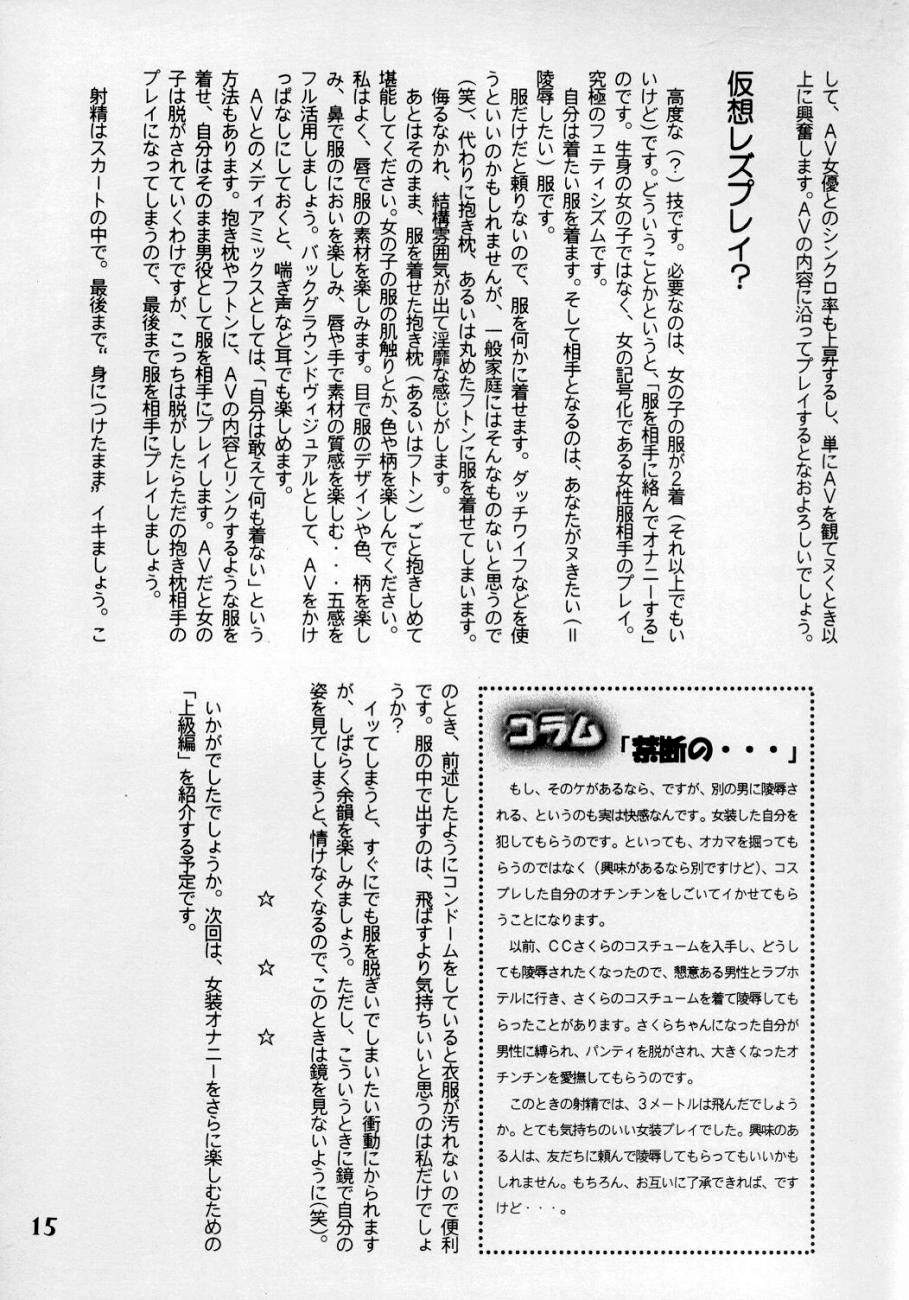 して、AV女優とのシンクロ率も上昇するし、単にAVを観てヌくとき以
上に興奮します。AVの内容に沿ってプレイするとなおよろしいでしょう。
仮想レズプレイ？
高度な（？）技です。必要なのは、女の子の服が２着（それ以上でもい
いけど）です。どういうことかというと、「服を相手に絡んでオナニーする」
のです。生身の女の子ではなく、女の記号化である女性服相手のプレイ。
究極のフェティシズムです。
自分は着たい服を着ます。そして相手となるのは、あなたがヌきたい（＝
陵辱したい）服です。
服だけだと頼りないので、服を何かに着せます。ダッチワイフなどを使
うといいのかもしれませんが、一般家庭にはそんなものないと思うので
（笑）、代わりに抱き枕、あるいは丸めたフトンに服を着せてしまいます。
侮るなかれ、結構雰囲気が出て淫靡な感じがします。
あとはそのまま、服を着せた抱き枕（あるいはフトン）ごと抱きしめて
堪能してください。女の子の服の肌触りとか、色や柄を楽しんでください。
私はよく、唇で服の素材を楽しみます。目で服のデザインや色、柄を楽し
み、鼻で服のにおいを楽しみ、唇や手で素材の質感を楽しむ・・・五感を
フル活用しましょう。バックグラウンドヴィジュアルとして、AVをかけ
っぱなしにしておくと、喘ぎ声など耳でも楽しめます。
AVとのメディアミックスとしては、「自分は敢えて何も着ない」という
方法もあります。抱き枕やフトンに、AVの内容とリンクするような服を
着せ、自分はそのまま男役として服を相手にプレイします。AVだと女の
子は脱がされていくわけですが、こっちは脱がしたらただの抱き枕相手の
プレイになってしまうので、最後まで服を相手にプレイしましょう。
射精はスカートの中で。最後まで〝身につけたまま〟イキましょう。こ
のとき、前述したようにコンドームをしていると衣服が汚れないので便利
です。服の中で出すのは、飛ばすより気持ちいいと思うのは私だけでしょ
うか？
イッてしまうと、すぐにでも服を脱ぎいでしまいたい衝動にかられます
が、しばらく余韻を楽しみましょう。ただし、こういうときに鏡で自分の
姿を見てしまうと、情けなくなるので、このときは鏡を見ないように（笑）。
☆　☆　☆
いかがでしたでしょうか。次回は、女装オナニーをさらに楽しむための
「上級編」を紹介する予定です。
コラム「禁断の・・・」
もし、そのケがあるなら、ですが、別の男に陵辱さ
れる、というのも実は快感なんです。女装した自分を
犯してもらうのです。といっても、オカマを掘っても
らうのではなく（興味があるなら別ですけど）、コス
プレした自分のオチンチンをしごいてイかせてもら
うことになります。
以前、CCさくらのコスチュームを入手し、どうし
ても陵辱されたくなったので、懇意ある男性とラブホ
テルに行き、さくらのコスチュームを着て陵辱しても
らったことがあります。さくらちゃんになった自分が
男性に縛られ、パンティを脱がされ、大きくなったオ
チンチンを愛撫してもらうのです。
このときの射精では、３メートルは飛んだでしょう
か。とても気持ちのいい女装プレイでした。興味のあ
る人は、友だちに頼んで陵辱してもらってもいいかも
しれません。もちろん、お互いに了承できれば、です
けど・・・。
15